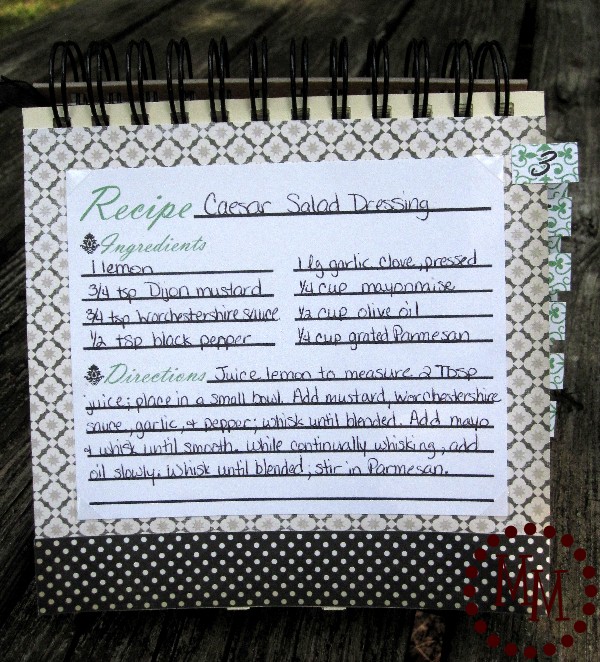 3
Recipe Caesar Salad Dressing
Ingredients
1 lemon
3/4 tsp Dijon mustard
3/4 tsp Worchestershire sauce
1/2 tsp black pepper
1 lg garlic clove, pressed
1/4 cup mayonnaise
1/2 cup olive oil
1/4 cup grated Parmesan
Directions Juice lemon to measure 2 Tbsp
juice; place in a small bowl. Add mustard, Worchestershire
sauce, garlic, + pepper; whisk until blended. Add mayo
+ whisk until smooth. While continually whisking, add
oil slowly; whisk until blended; stir in Parmesan.
MM